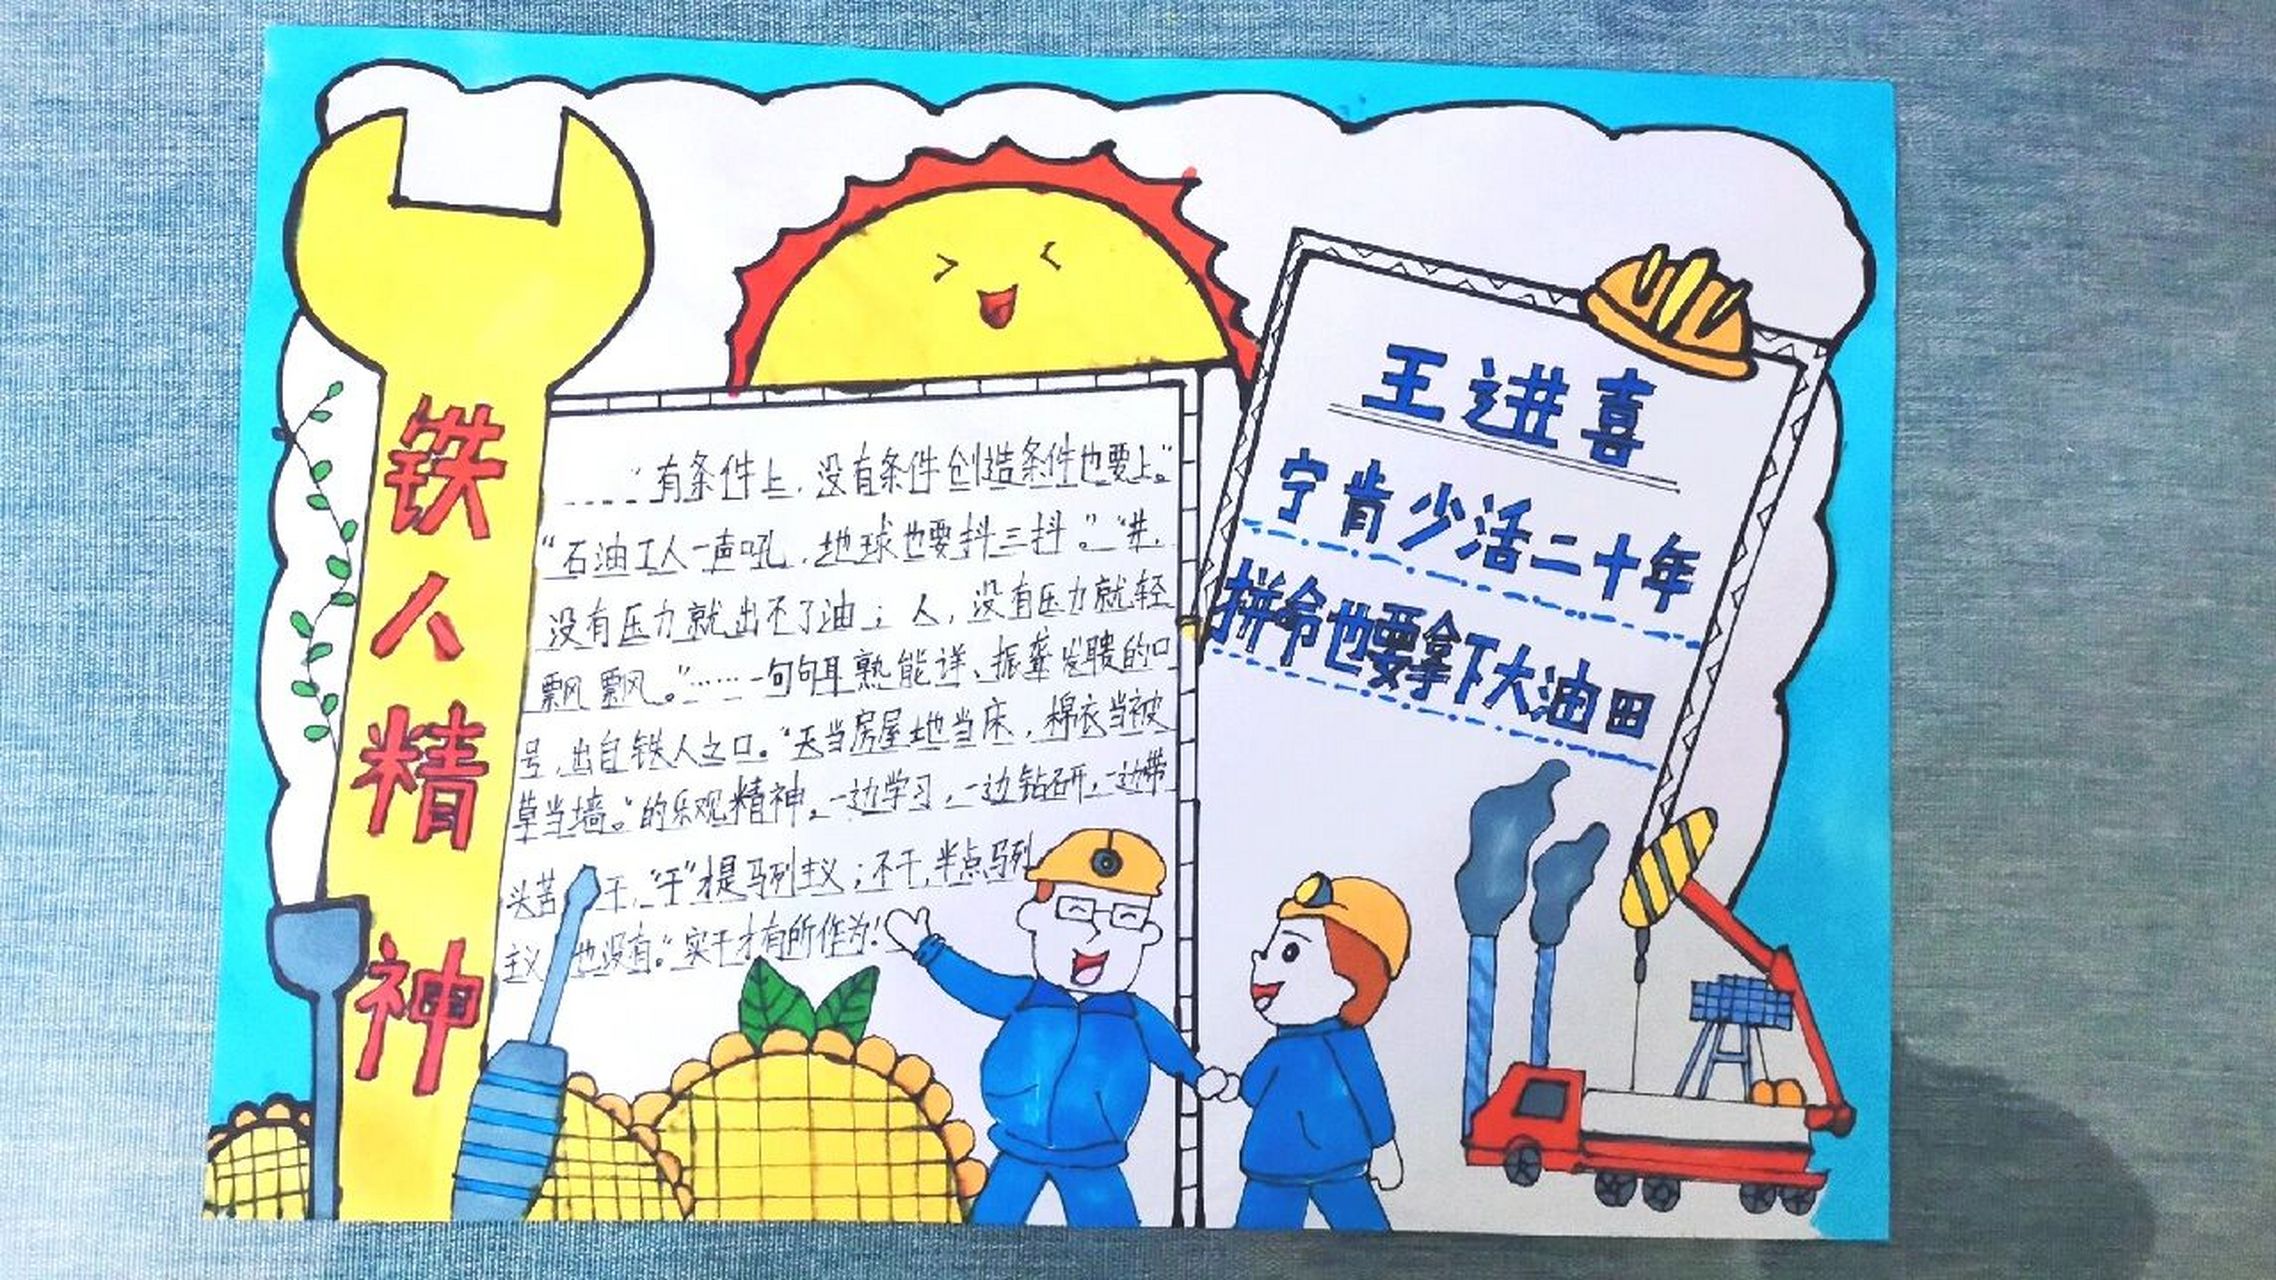 铁人精神
"有条件上,没有条件创造条件也要上。"
"石油工人一声吼,地球也要抖三抖。""井,
没有压力就出不了油;人,没有压力就轻
飘飘。"……一句句耳熟能详、振聋发聩的口
号,出自铁人之口。"天当房屋地当床,棉衣当被
草当墙。"的乐观精神。一边学习,一边钻研,一边带
头苦干,"干"才是马列主义;不干,半点马列
主义也没有。"实干才有所作为!
王进喜
宁肯少活二十年
拼命也要拿下大油田